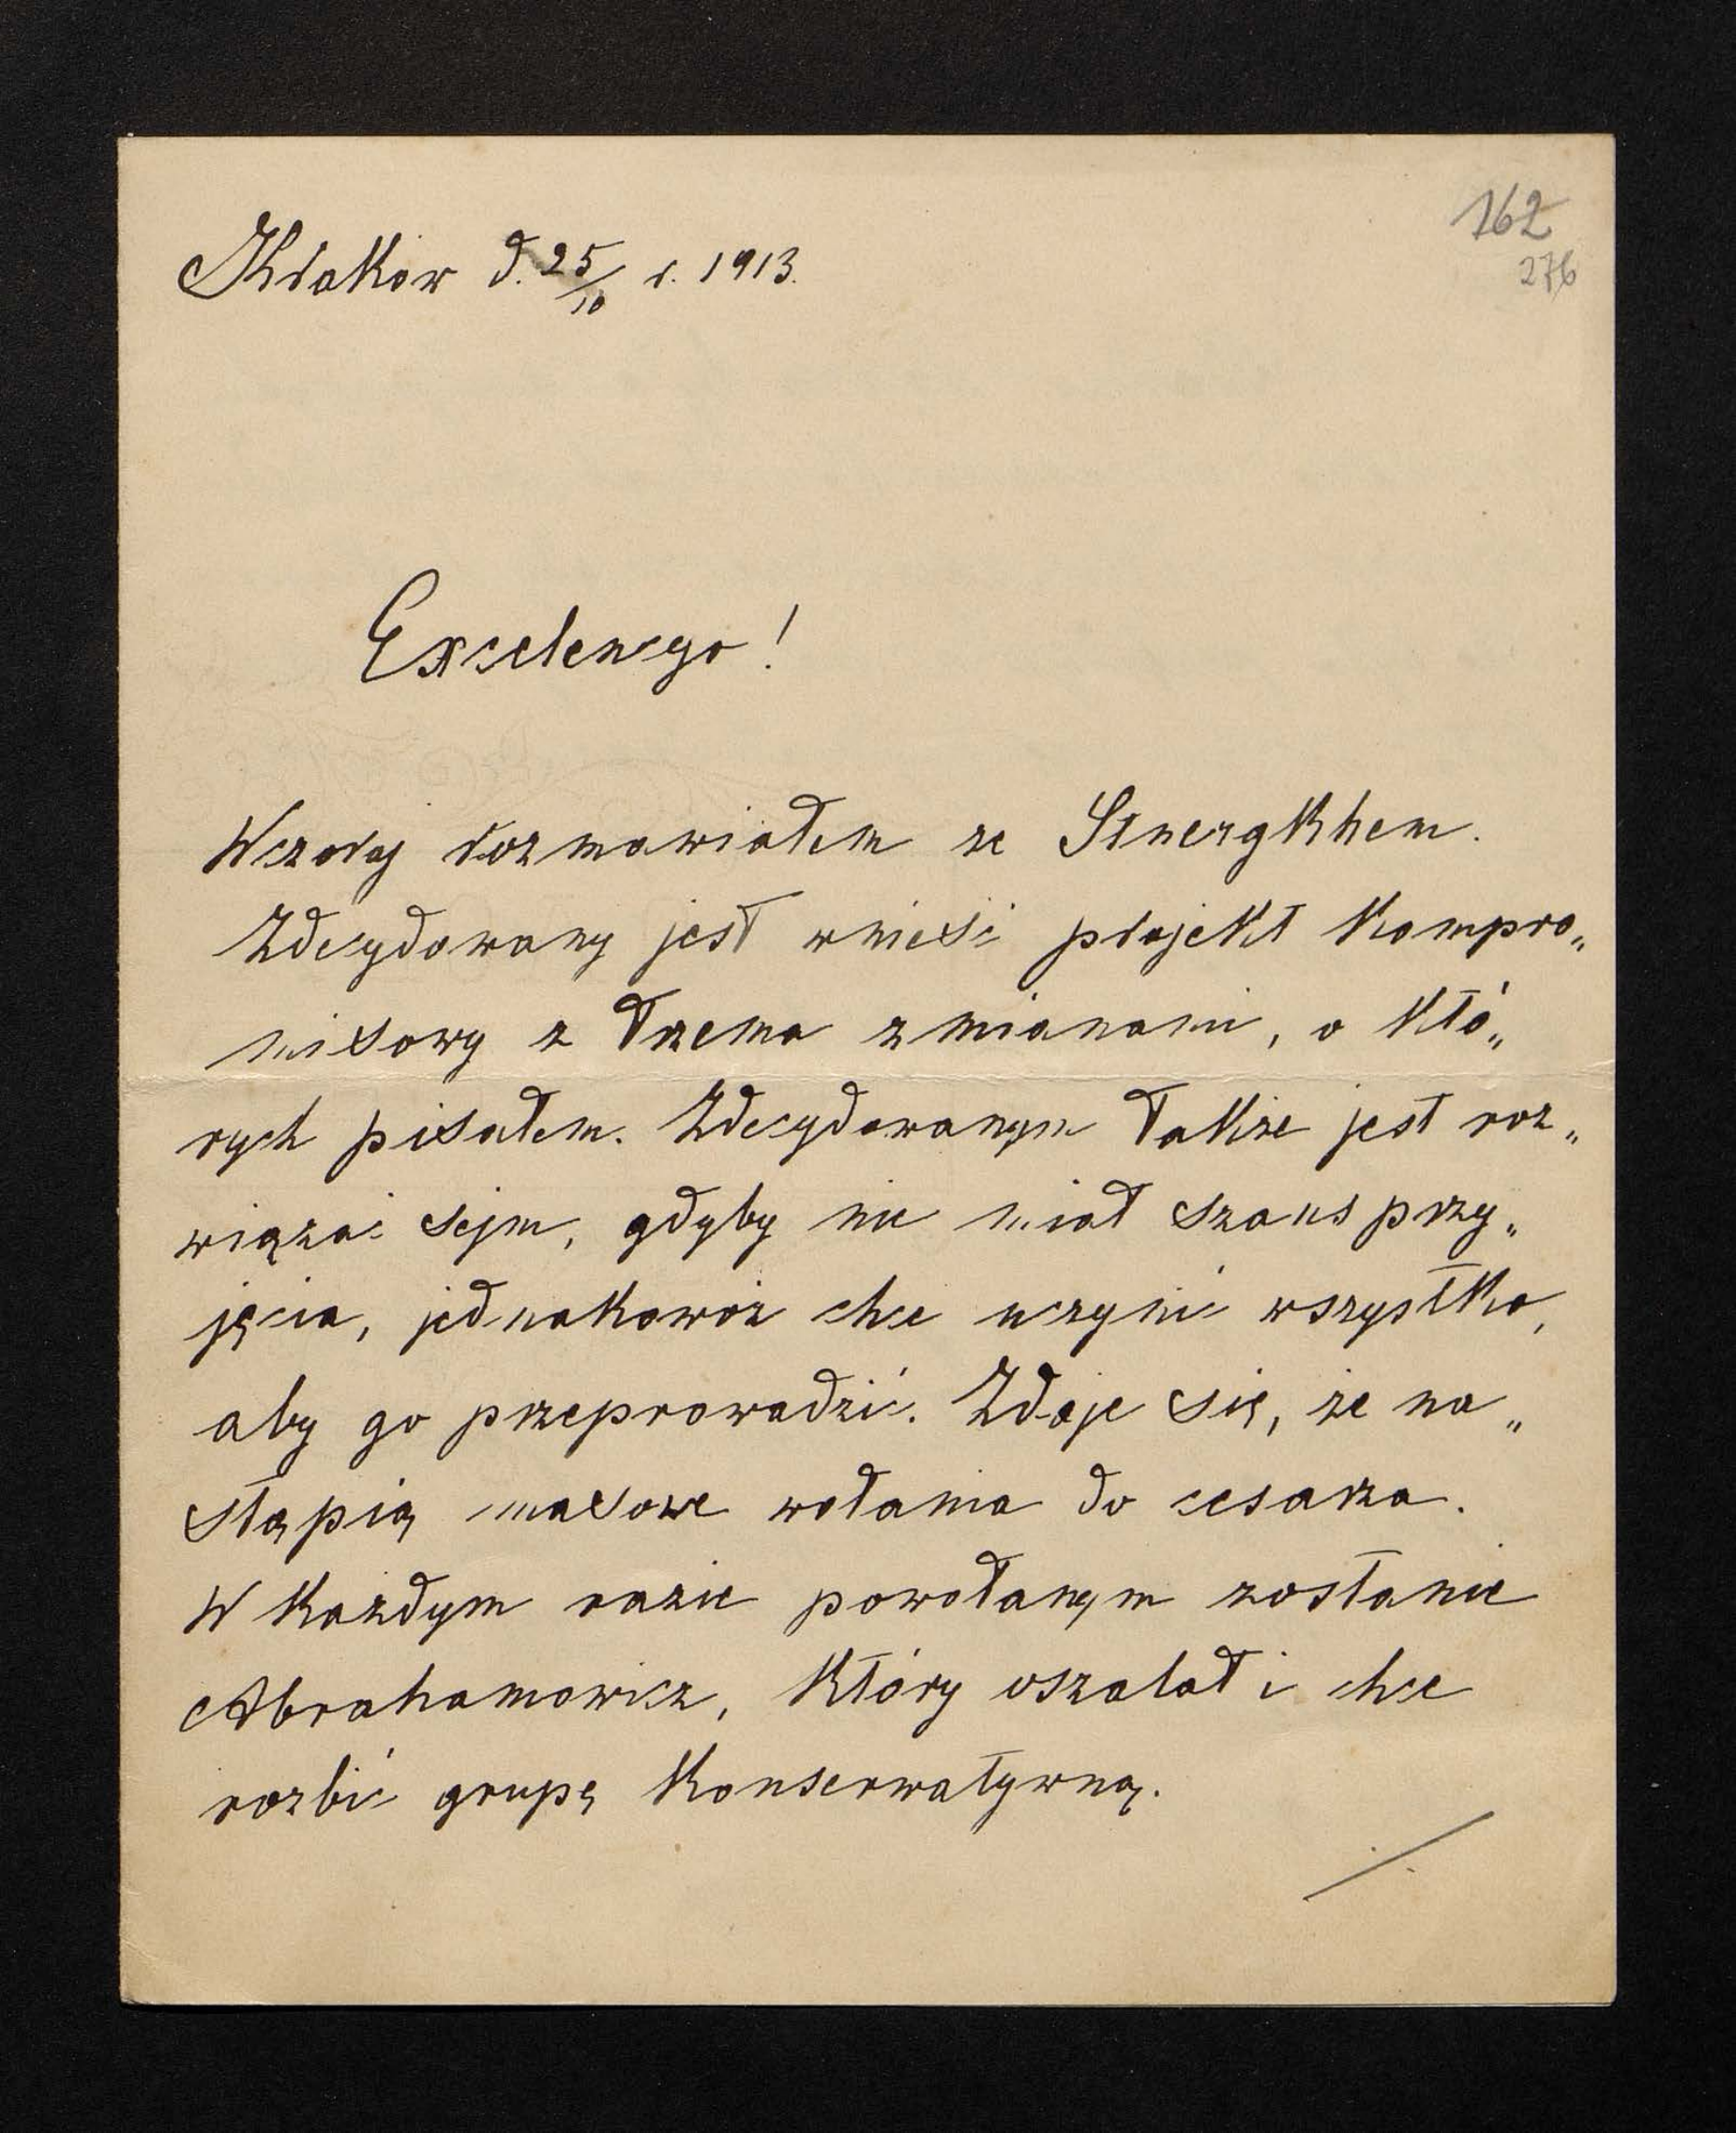 162
276
Kraków d. 25/10 r. 1913.
Excelencyo!
Wczoraj rozmawiałem ze Stuergkhem.
Zdecydowany jest wnieść projekt kompro„
misowy z trzema zmianami, o któ„
rych pisałem. Zdecydowanym także jest roz„
wiązać sejm, gdyby nie miał szans przy„
jęcia, jednakowoż chce uczynić wszystko,
aby go przeprowadzić. Zdaje się, że na„
stąpią masowe wołania do cesarza.
W każdym razie powołanym zostanie
Abrahamowicz, który oszalał i chce
rozbić grupę konserwatywną.
./.